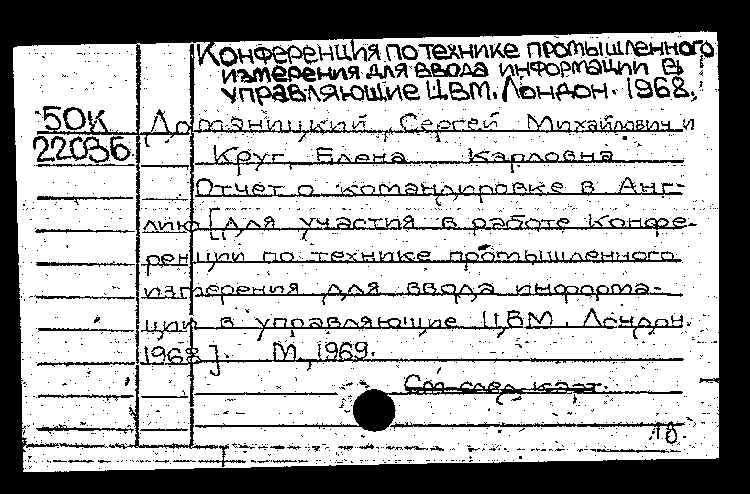 Конференция по технике промышленного
измерения для ввода информации в
управляющие ЦВМ. Лондон. 1968.
50К
22036
Доманицкий, Сергей Михайлович и
Круг, Елена Карловна
Отчет о командировке в Анг-
лию [для участия в работе Конфе-
ренции по технике промышленного
измерения для ввода информа-
ции в управляющие ЦВМ. Лондон.
1968]. М., 1969.
См след карт.